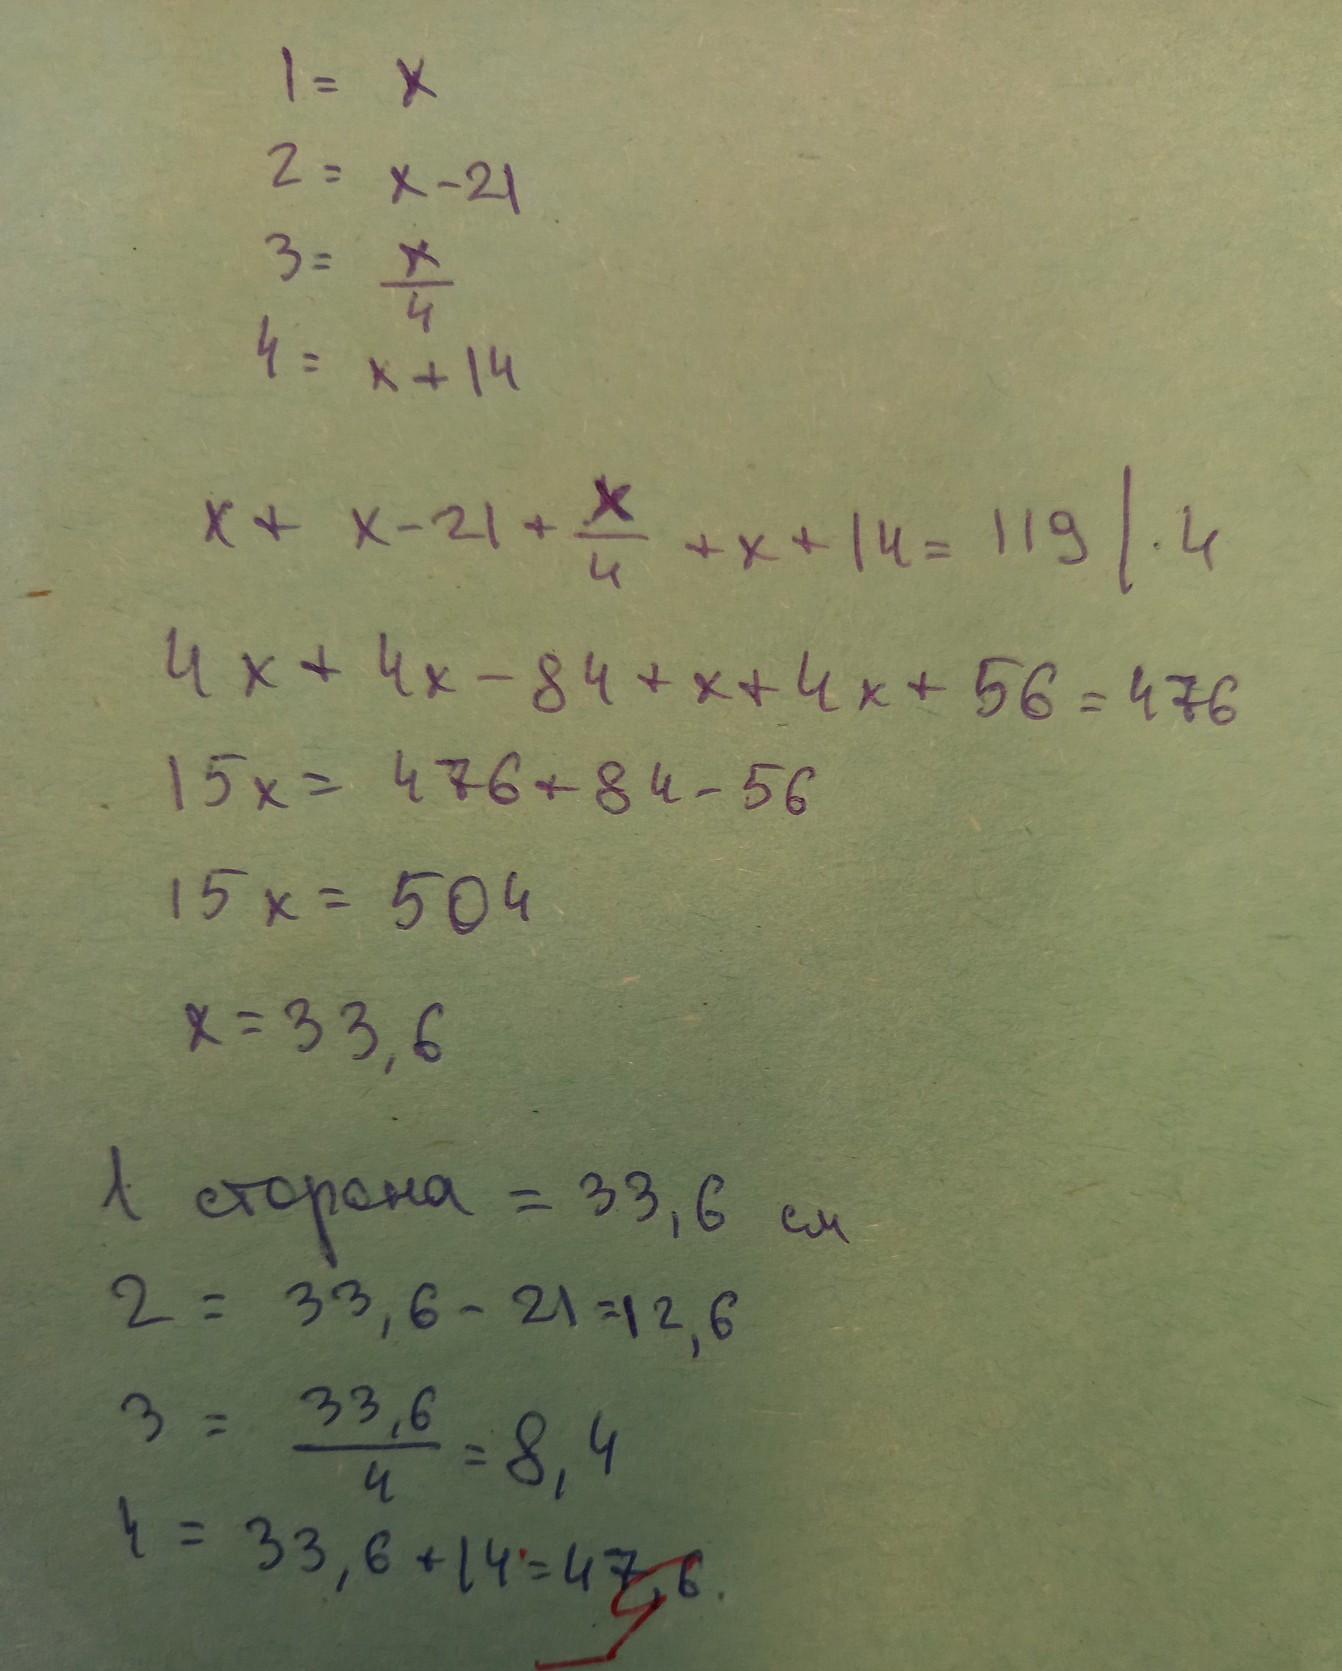 1 = x
2 = x - 21
3 = x/4
4 = x + 14
x + x - 21 + x/4 + x + 14 = 119 | · 4
4x + 4x - 84 + x + 4x + 56 = 476
15x = 476 + 84 - 56
15x = 504
x = 33,6
1 сторона = 33,6 см
2 = 33,6 - 21 = 12,6
3 = 33,6/4 = 8,4
4 = 33,6 + 14 = 47,6.